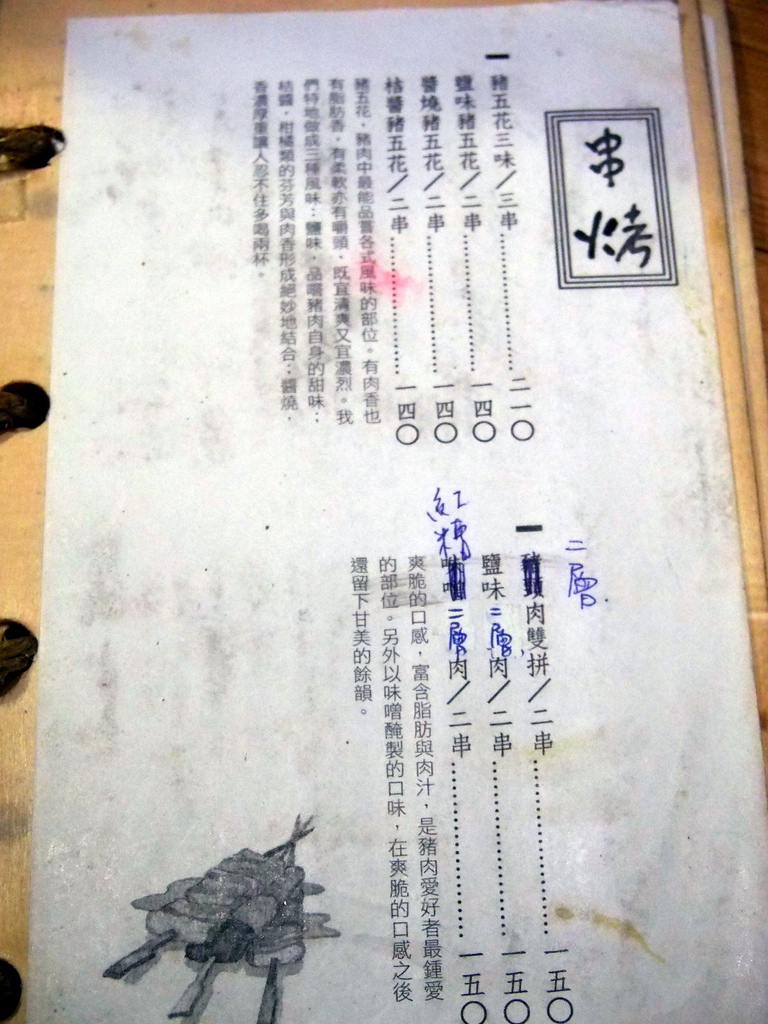 串烤
豬五花三味／三串⋯⋯⋯⋯⋯⋯二一〇
鹽味豬五花／二串⋯⋯⋯⋯⋯⋯一四〇
醬燒豬五花／二串⋯⋯⋯⋯⋯⋯一四〇
桔醬豬五花／二串⋯⋯⋯⋯⋯⋯一四〇
豬五花，豬肉中最能品嘗各式風味的部位。有肉香也
有脂肪香，有柔軟亦有嚼頭，既宜清爽又宜濃烈。我
們特地做成三種風味：鹽味，品嚼豬肉自身的甜味；
桔醬，柑橘類的芬芳與肉香形成絕妙地結合；醬燒，
香濃厚重讓人忍不住多喝兩杯。
二層
肉雙拼／二串⋯⋯⋯⋯⋯⋯一五〇
鹽味二層肉／二串⋯⋯⋯⋯⋯⋯一五〇
紅糟二層肉／二串⋯⋯⋯⋯⋯⋯一五〇
爽脆的口感，富含脂肪與肉汁，是豬肉愛好者最鍾愛
的部位。另外以味噌醃製的口味，在爽脆的口感之後
還留下甘美的餘韻。